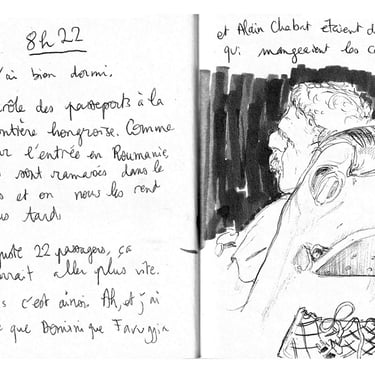 8h22
'ai bien dormi.
rôle des passeports à la
ntière hongroise. Comme
r l'entrée en Roumanie,
s sont ramassés dans le
s et on nous les rend
us tard
uste 22 passagers, ça
rrait aller plus vite.
s c'est ainsi. Ah, et j'ai
é que Dominique Farugia
et Alain Chabat étaient d
qui mangeaient les c